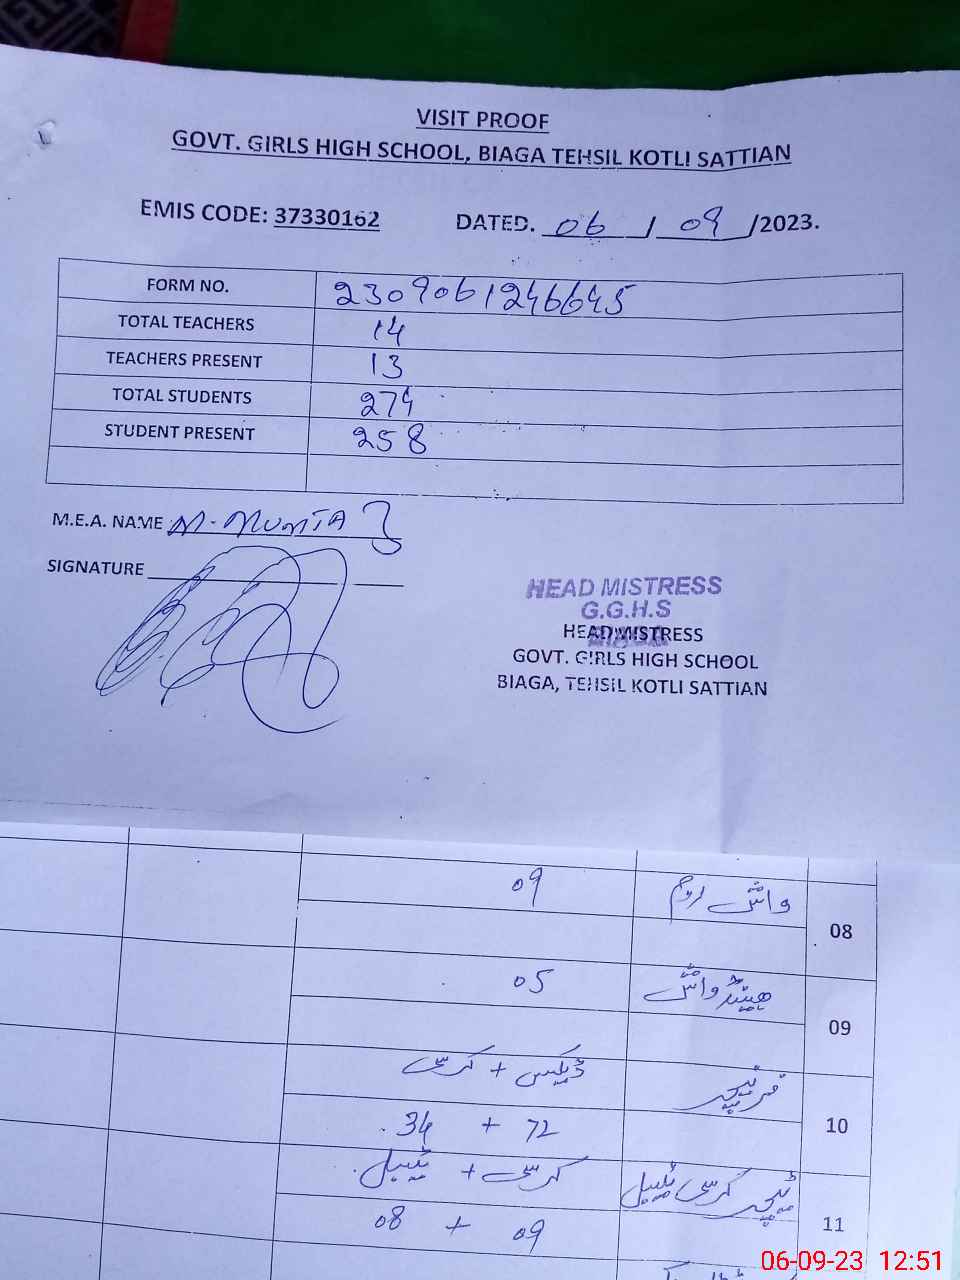 VISIT PROOF
GOVT. GIRLS HIGH SCHOOL, BIAGA TEHSIL KOTLI SATTIAN
EMIS CODE: 37330162 DATED. 06/09/2023.
FORM NO. 2309061246645
TOTAL TEACHERS 14
TEACHERS PRESENT 13
TOTAL STUDENTS 274
STUDENT PRESENT 258
M.E.A. NAME M. MUMTAZ
SIGNATURE
HEAD MISTRESS
G.G.H.S
HEADMISTRESS
GOVT. GIRLS HIGH SCHOOL
BIAGA, TEHSIL KOTLI SATTIAN
08 واش روم 09
09 ہینڈ واش 05
10 فرنیچر ڈیکس + کرسی
72 + 34
11 ٹیچر کرسی ٹیبل کرسی + ٹیبل
09 + 08
06-09-23 12:51